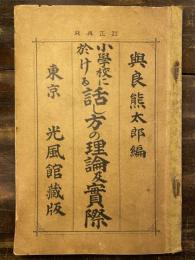 與良熊太郎編
小學校に
於ける
話し方の理論及實際
東京 光風館藏版